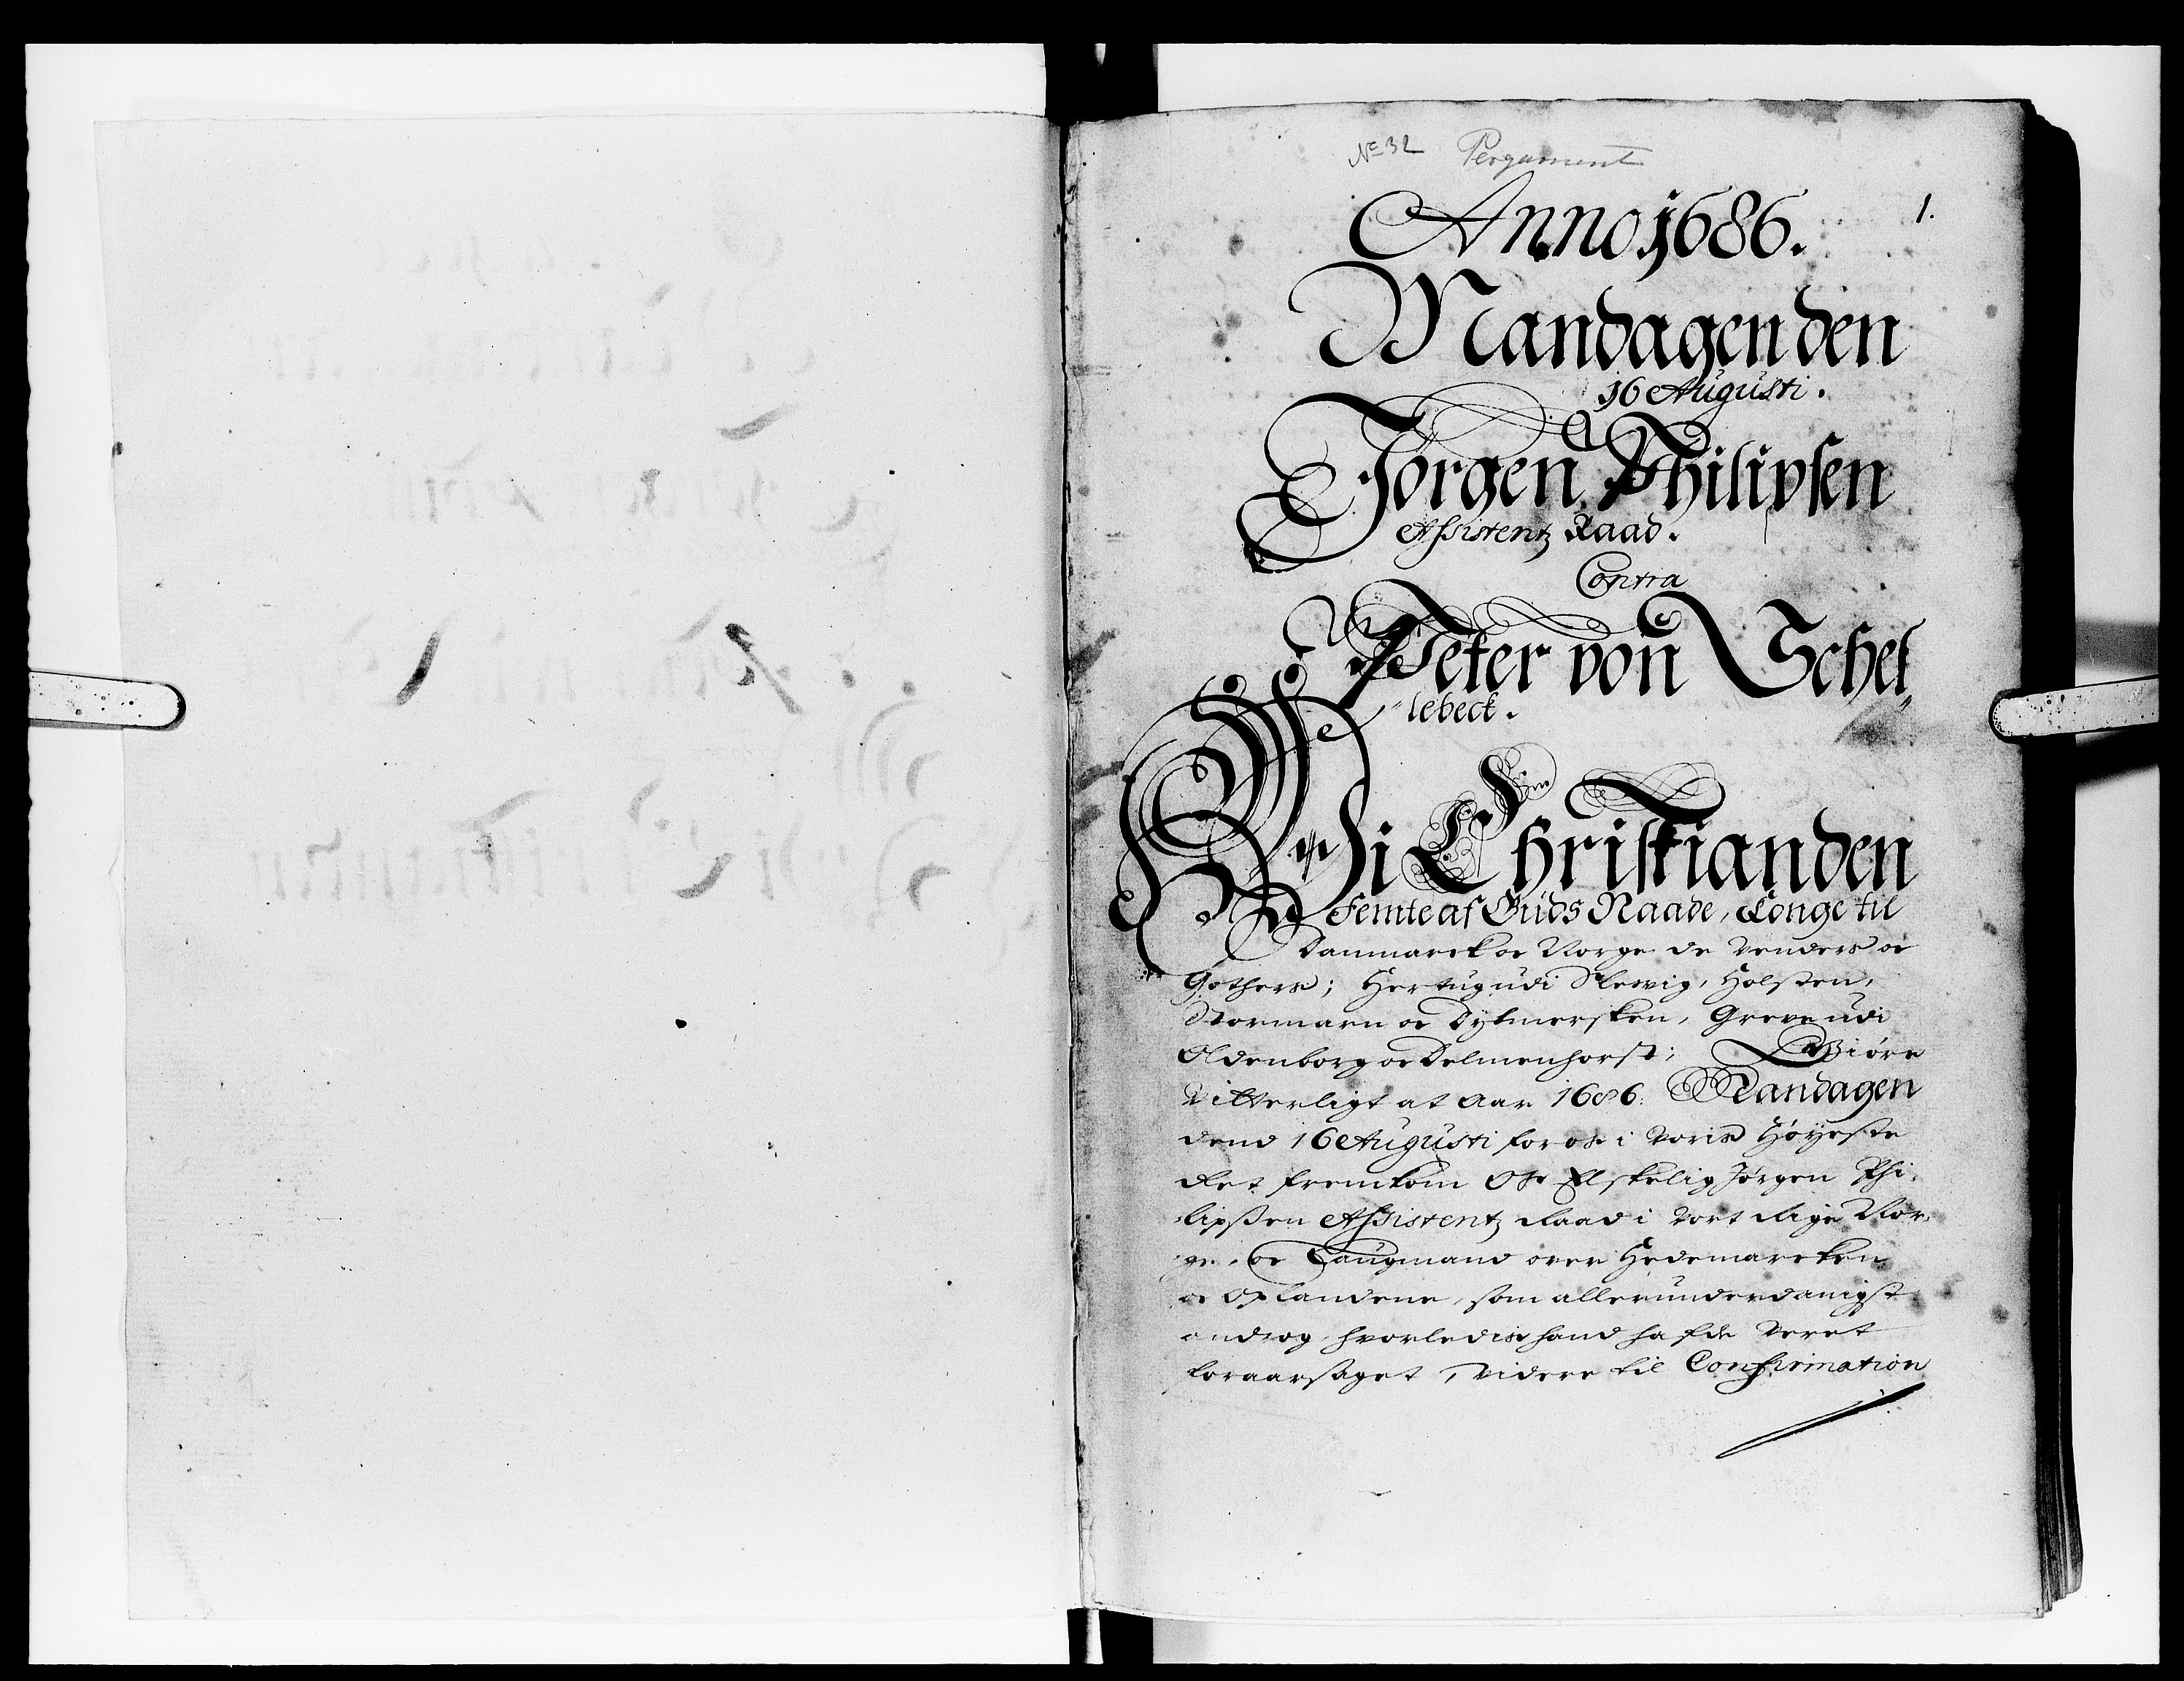 No 32 Pergament
1.
Anno 1686.
Mandagen den
16 Augusti.
Jørgen Philipsen
Assistentz Raad.
Contra
Peter von Schel„
„lebeck.
Wi Christian den
Femte af Guds Naade, Konge til
Danmarck oc Norge de Venders oc
Gothers; Hertug udi Slesvig, Holsten,
Stormarn oc Dytmersken, Greve udi
Oldenborg oc Delmenhorst; Giøre
Vitterligt at Aar 1686. Mandagen
dend 16 Augusti for os i Voris Høyeste
Ret fremkom Os Elskelig Jørgen Phi„
lipsen Assistentz Raad i Vort Rige Nor„
ge, oc Laugmand over Hedemarcken
oc Oplandene, som allerunderdanigst
androg hvorledis hand hafde veret
foraarsaget, videre til Confirmation